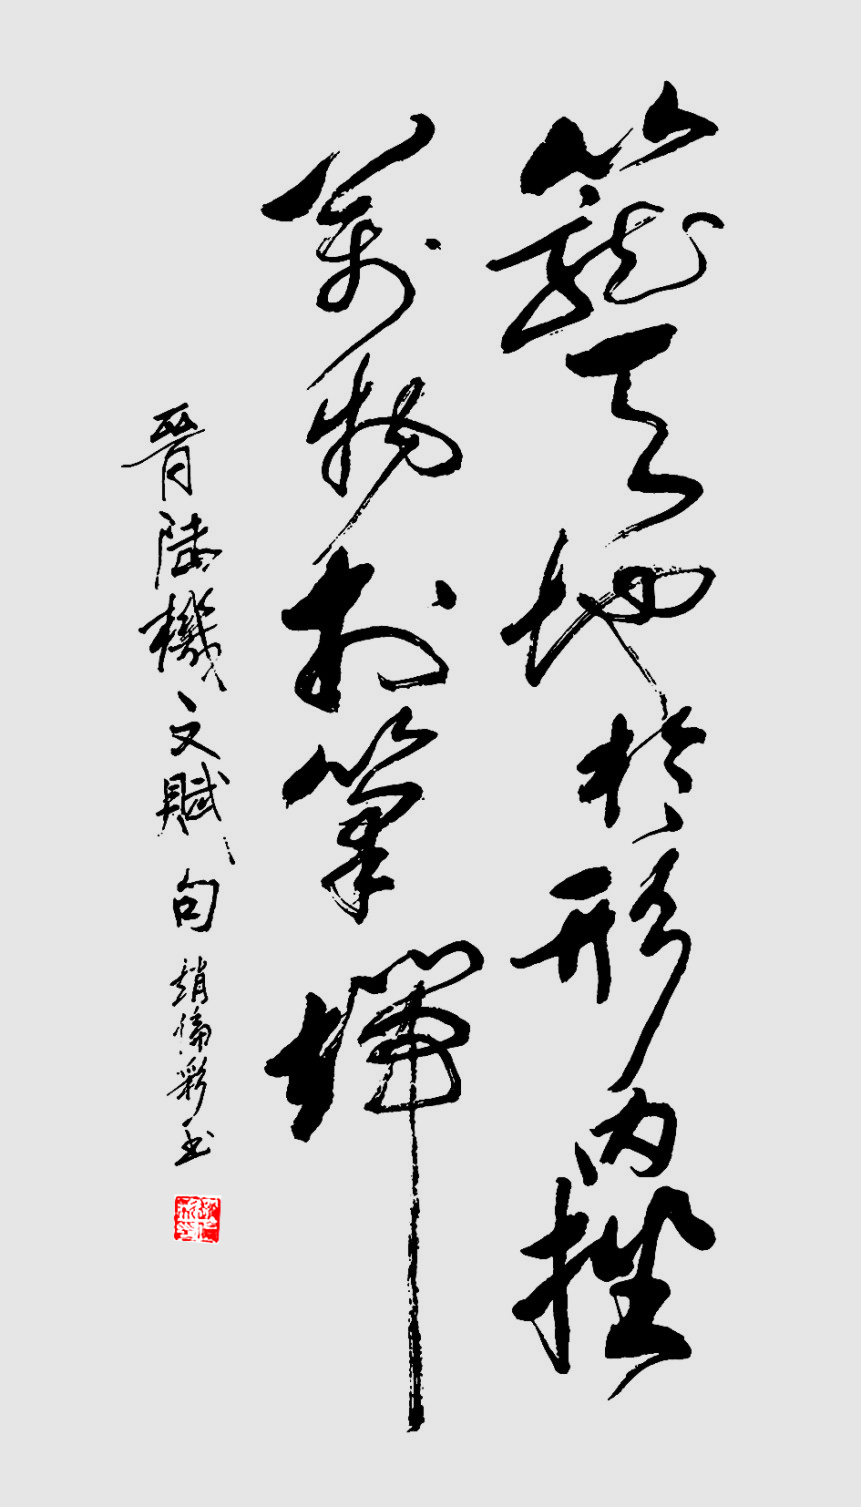 籠天地於形内挫
萬物於筆端
晉陸機文賦句 趙 彩